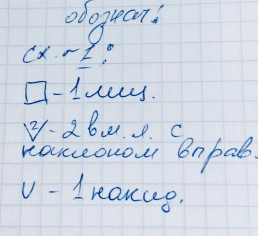 обознач:
сх. ~ 1:
□ - 1 лиц.
- 2 вм. л. с
наклоном вправ.
U - 1 накид.